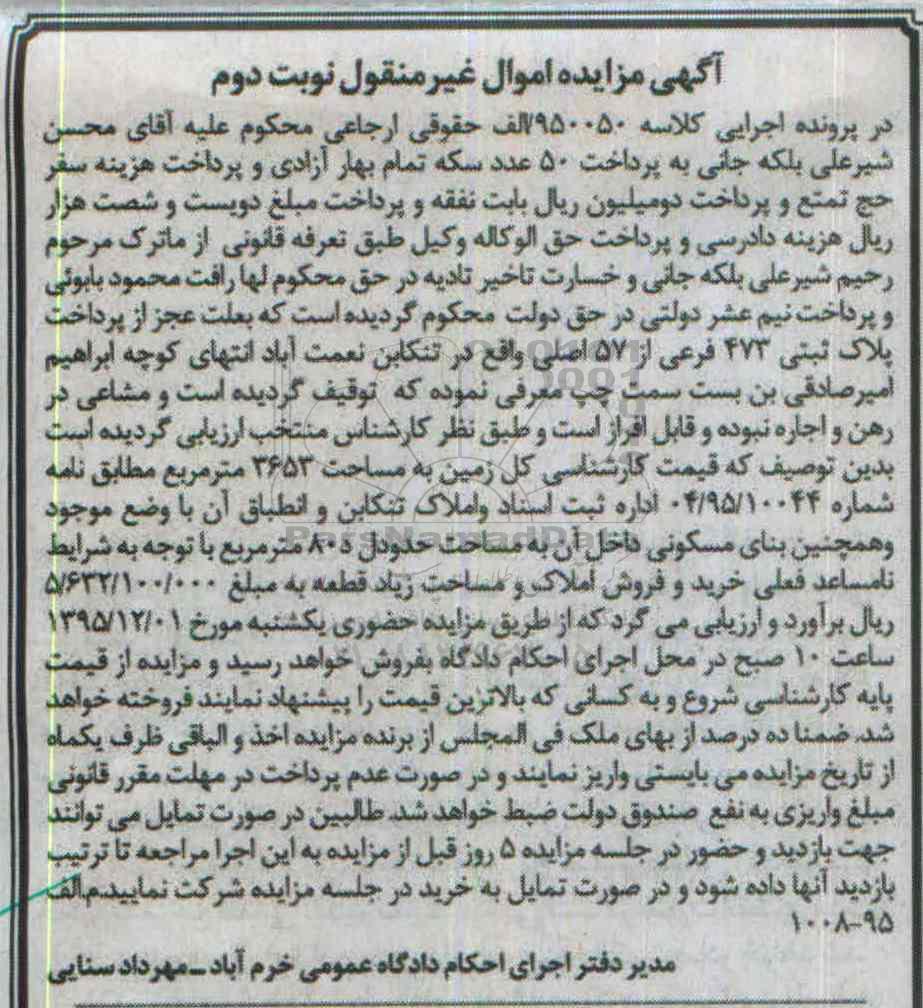 آگهی مزایده اموال غیرمنقول نوبت دوم
در پرونده اجرایی کلاسه ۹۵۰۰۵۰/الف حقوقی ارجاعی محکوم علیه آقای محسن
شیرعلی بلکه جانی به پرداخت ۵۰ عدد سکه تمام بهار آزادی و پرداخت هزینه سفر
حج تمتع و پرداخت دومیلیون ریال بابت نفقه و پرداخت مبلغ دویست و شصت هزار
ریال هزینه دادرسی و پرداخت حق الوکاله وکیل طبق تعرفه قانونی از ماترک مرحوم
رحیم شیرعلی بلکه جانی و خسارت تاخیر تادیه در حق محکوم لها رافت محمود بابوئی
و پرداخت نیم عشر دولتی در حق دولت محکوم گردیده است که بعلت عجز از پرداخت
پلاک ثبتی ۴۷۳ فرعی از ۵۷ اصلی واقع در تنکابن نعمت آباد انتهای کوچه ابراهیم
امیرصادقی بن بست سمت چپ معرفی نموده که توقیف گردیده است و مشاعی در
رهن و اجاره نبوده و قابل افراز است و طبق نظر کارشناس منتخب ارزیابی گردیده است
بدین توصیف که قیمت کارشناسی کل زمین به مساحت ۳۶۵۳ مترمربع مطابق نامه
شماره ۰۴/۹۵/۱۰۰۴۴ اداره ثبت اسناد واملاک تنکابن و انطباق آن با وضع موجود
وهمچنین بنای مسکونی داخل آن به مساحت حدودل د۸۰ مترمربع با توجه به شرایط
نامساعد فعلی خرید و فروش املاک و مساحت زیاد قطعه به مبلغ ۵/۶۳۲/۱۰۰/۰۰۰
ریال برآورد و ارزیابی می گرد که از طریق مزایده حضوری یکشنبه مورخ ۱۳۹۵/۱۲/۰۱
ساعت ۱۰ صبح در محل اجرای احکام دادگاه بفروش خواهد رسید و مزایده از قیمت
پایه کارشناسی شروع و به کسانی که بالاترین قیمت را پیشنهاد نمایند فروخته خواهد
شد. ضمنا ده درصد از بهای ملک فی المجلس از برنده مزایده اخذ و الباقی ظرف یکماه
از تاریخ مزایده می بایستی واریز نمایند و در صورت عدم پرداخت در مهلت مقرر قانونی
مبلغ واریزی به نفع صندوق دولت ضبط خواهد شد. طالبین در صورت تمایل می توانند
جهت بازدید و حضور در جلسه مزایده ۵ روز قبل از مزایده به این اجرا مراجعه تا ترتیب
بازدید آنها داده شود و در صورت تمایل به خرید در جلسه مزایده شرکت نمایید.م.الف
۹۵-۱۰۰۸
مدیر دفتر اجرای احکام دادگاه عمومی خرم آباد ـ مهرداد سنایی
ParsNamadData